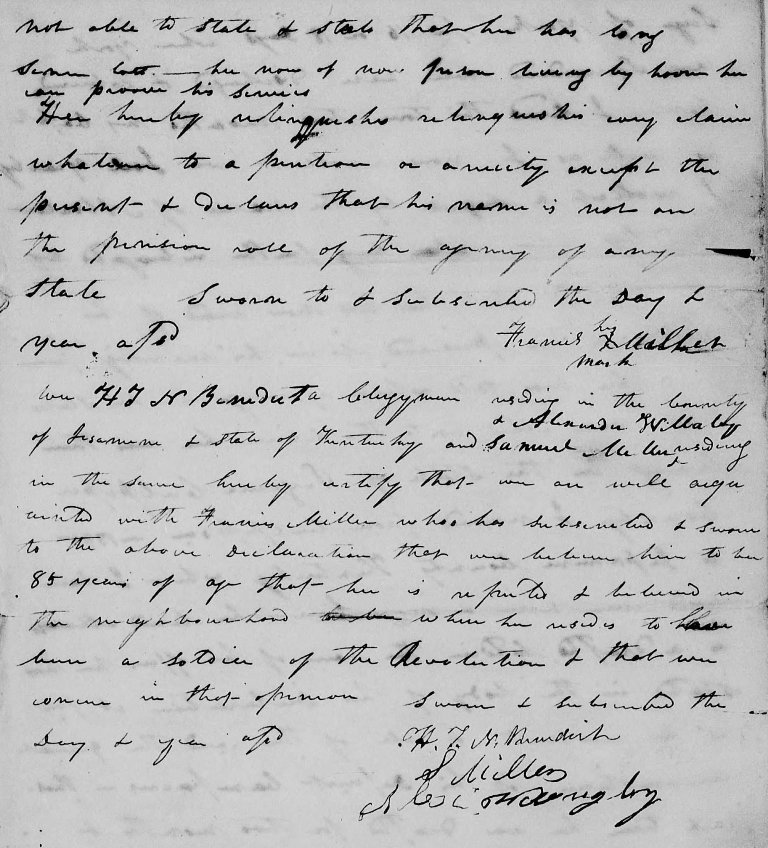 not able to state & state that he has long
since lost — he now of now person living by whom he
can proove his services
Hee hereby relinquishes relinquishes every claim
whatever to a pention or anuity except the
present & Declares that his name is not on
the pension role of the agency of any
state Sworn to & Subscribed the Day &
year afsd Francis his x Miller
mark
We H T N Benedict a Clergyman residing in the County
& Alexander Willoby
of Jesamine & State of Kentucky and Samuel Miller residing
in the same hereby certify that we are well acqu
ainted with Francis Miller who has subscribed & sworn
to the above Declaration that we believe him to be
85 years of age that he is reputed & believed in
the neighbourhood to be where he resides to have
been a soldier of the Revolution & that we
concur in that opinion Sworn & subscribed the
Day & year afsd H. T. N. Benedict
S Miller